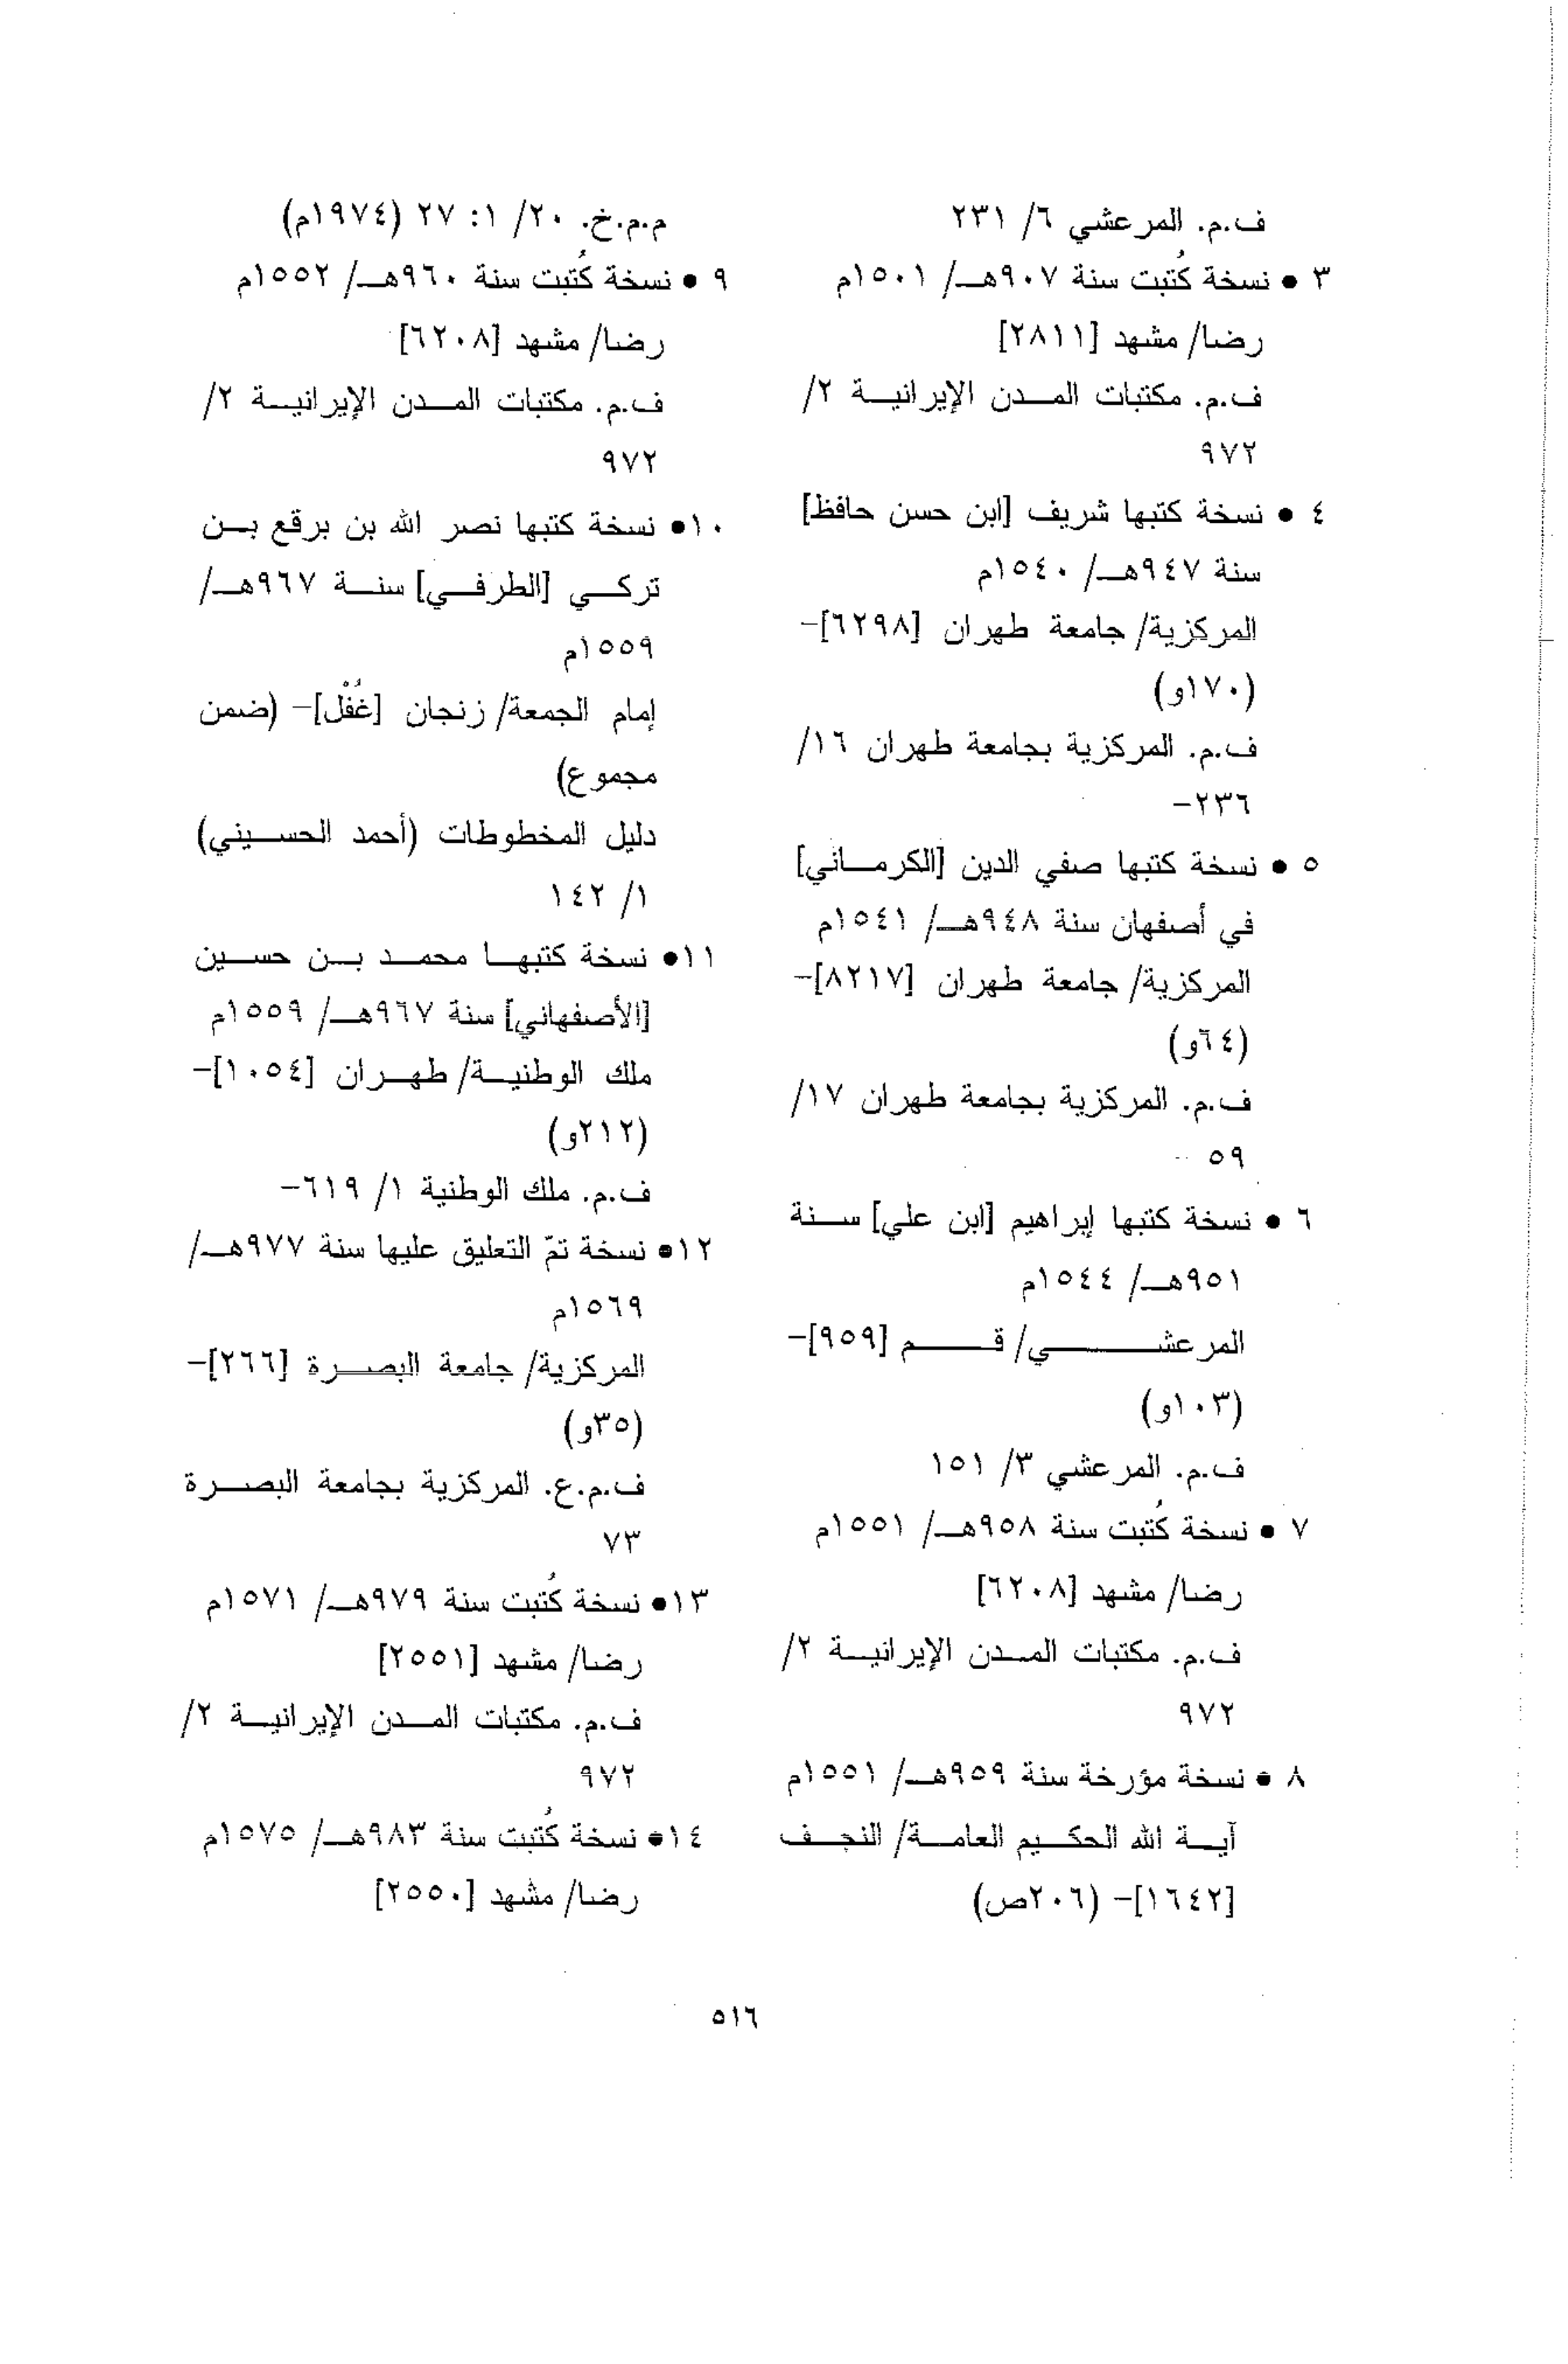 ف.م. المرعشي ٦/ ٢٣١
٣ • نسخة كُتبت سنة ٩٠٧هـ/ ١٥٠١م
رضا/ مشهد [٢٨١١]
ف.م. مكتبات المدن الإيرانية ٢/
٩٧٢
٤ • نسخة كتبها شريف [ابن حسن حافظ]
سنة ٩٤٧هـ/ ١٥٤٠م
المركزية/ جامعة طهران [٦٢٩٨]-
(١٧٠و)
ف.م. المركزية بجامعة طهران ١٦/
٢٣٦-
٥ • نسخة كتبها صفي الدين [الكرماني]
في أصفهان سنة ٩٤٨هـ/ ١٥٤١م
المركزية/ جامعة طهران [٨٢١٧]-
(٦٤و)
ف.م. المركزية بجامعة طهران ١٧/
٥٩
٦ • نسخة كتبها إبراهيم [ابن علي] سنة
٩٥١هـ/ ١٥٤٤م
المرعشي/ قم [٩٥٩]-
(١٠٣و)
ف.م. المرعشي ٣/ ١٥١
٧ • نسخة كُتبت سنة ٩٥٨هـ/ ١٥٥١م
رضا/ مشهد [٦٢٠٨]
ف.م. مكتبات المدن الإيرانية ٢/
٩٧٢
٨ • نسخة مؤرخة سنة ٩٥٩هـ/ ١٥٥١م
آية الله الحكيم العامة/ النجف
[١٦٤٢]- (٢٠٦ص)
م.م.خ. ٢٠/ ١: ٢٧ (١٩٧٤م)
٩ • نسخة كُتبت سنة ٩٦٠هـ/ ١٥٥٢م
رضا/ مشهد [٦٢٠٨]
ف.م. مكتبات المدن الإيرانية ٢/
٩٧٢
١٠• نسخة كتبها نصر الله بن برقع بن
تركي [الطرفي] سنة ٩٦٧هـ/
١٥٥٩م
إمام الجمعة/ زنجان [غُفْل]- (ضمن
مجموع)
دليل المخطوطات (أحمد الحسيني)
١/ ١٤٢
١١• نسخة كتبها محمد بن حسين
[الأصفهاني] سنة ٩٦٧هـ/ ١٥٥٩م
ملك الوطنية/ طهران [١٠٥٤]-
(٢١٢و)
ف.م. ملك الوطنية ١/ ٦١٩-
١٢• نسخة تمّ التعليق عليها سنة ٩٧٧هـ/
١٥٦٩م
المركزية/ جامعة البصرة [٢٦٦]-
(٣٥و)
ف.م.ع. المركزية بجامعة البصرة
٧٣
١٣• نسخة كُتبت سنة ٩٧٩هـ/ ١٥٧١م
رضا/ مشهد [٢٥٥١]
ف.م. مكتبات المدن الإيرانية ٢/
٩٧٢
١٤• نسخة كُتبت سنة ٩٨٣هـ/ ١٥٧٥م
رضا/ مشهد [٢٥٥٠]
٥١٦